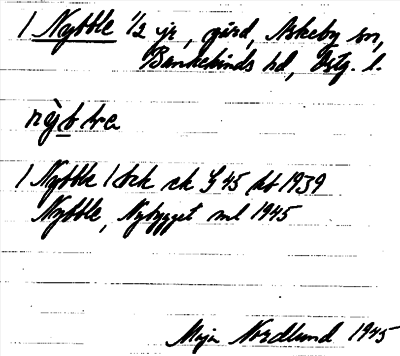 1 Nybble 1/2 jr, gård, Askeby sn,
Bankekinds hd, Östg. l.
nỳb bɐ
1 Nybble 1 bck ck G 45 db 1939
Nybble, Nybygget ml 1945
Maja Nordlund 1945